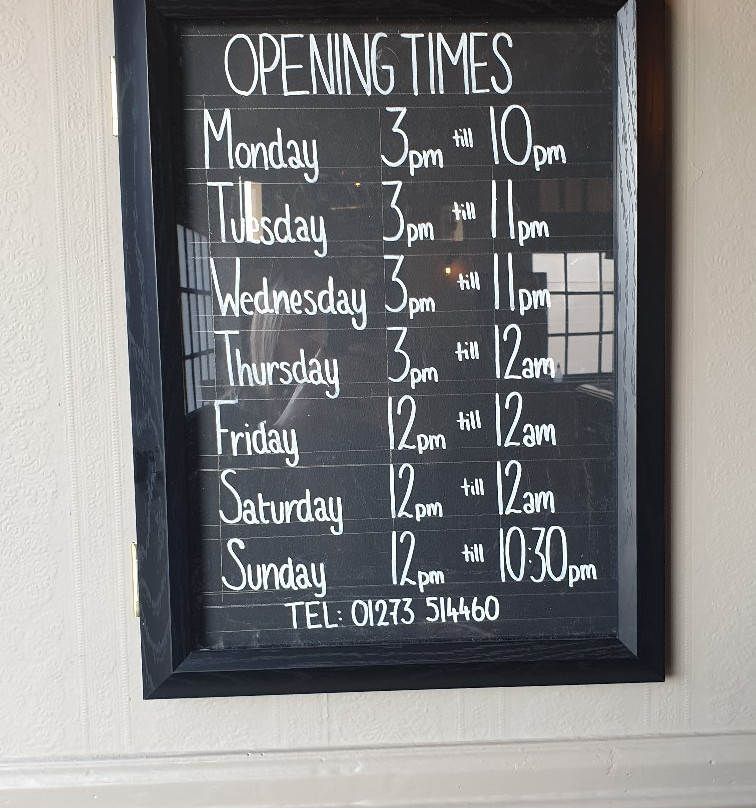 OPENING TIMES
Monday 3pm till 10pm
Tuesday 3pm till 11pm
Wednesday 3pm till 11pm
Thursday 3pm till 12am
Friday 12pm till 12am
Saturday 12pm till 12am
Sunday 12pm till 10:30pm
TEL: 01273 514460